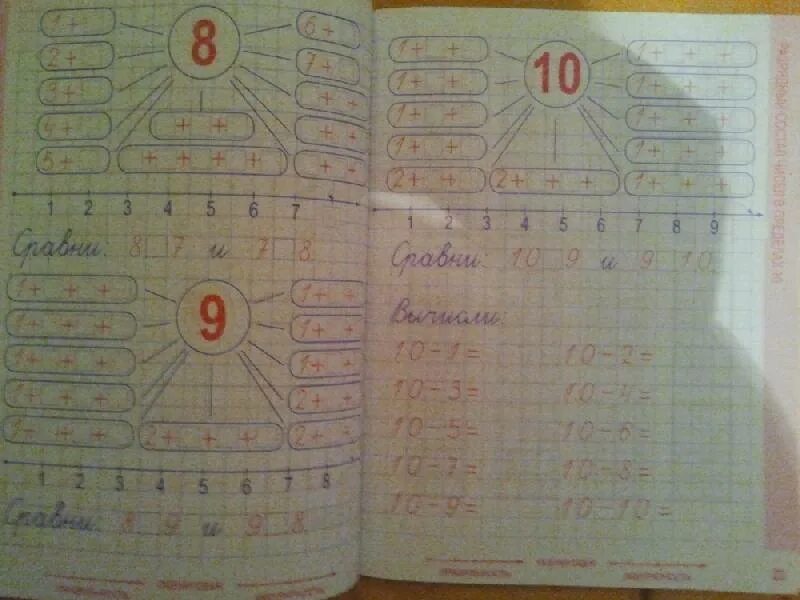 8
1+ 6+
2+ 7+
3+ + +
4+ + + + +
5+ + + + + + +
1 2 3 4 5 6 7
Сравни: 8 7 и 7 8
9
1+ + + 1+ +
1+ + + 1+ +
1+ + + 1+ +
1+ + + 2+ +
1+ + + 2+ + + 2+ +
1 2 3 4 5 6 7 8
Сравни: 8 9 и 9 8
10
1+ + 1+ + +
1+ + 1+ + +
1+ + 1+ + +
1+ + 1+ + +
2+ + 2+ + + 1+ + +
1 2 3 4 5 6 7 8 9
Сравни: 10 9 и 9 10
Вычисли:
10-1= 10-2=
10-3= 10-4=
10-5= 10-6=
10-7= 10-8=
10-9= 10-10=